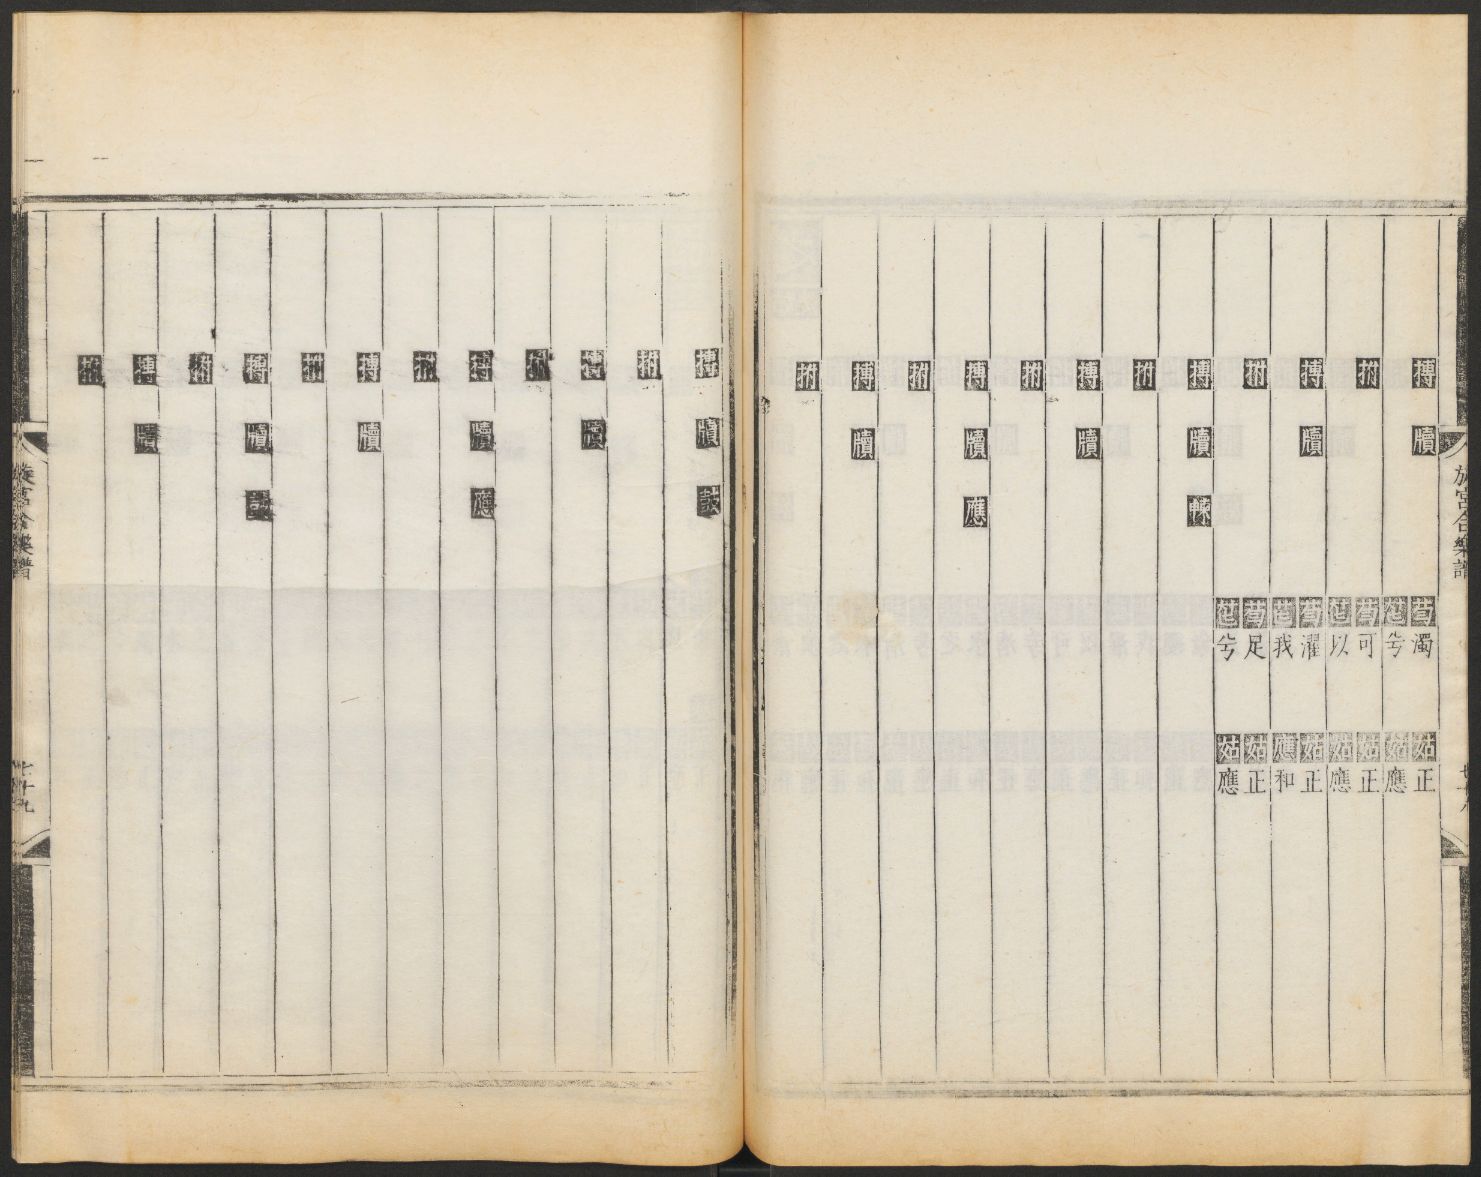 旋宮合樂譜 七十八
搏 牘 濁 姑 正
兮 姑 應
拊 可 姑 正
以 姑 應
搏 牘 濯 姑 正
我 應 和
拊 足 姑 正
兮 姑 應
搏 牘
拊
搏 牘
拊
搏 牘 應
拊
搏 牘
拊
搏 牘 鼓
拊
搏 牘
拊
搏 牘 應
拊
搏 牘
拊
搏 牘
拊
搏 牘
拊
旋宮合樂譜 七十九